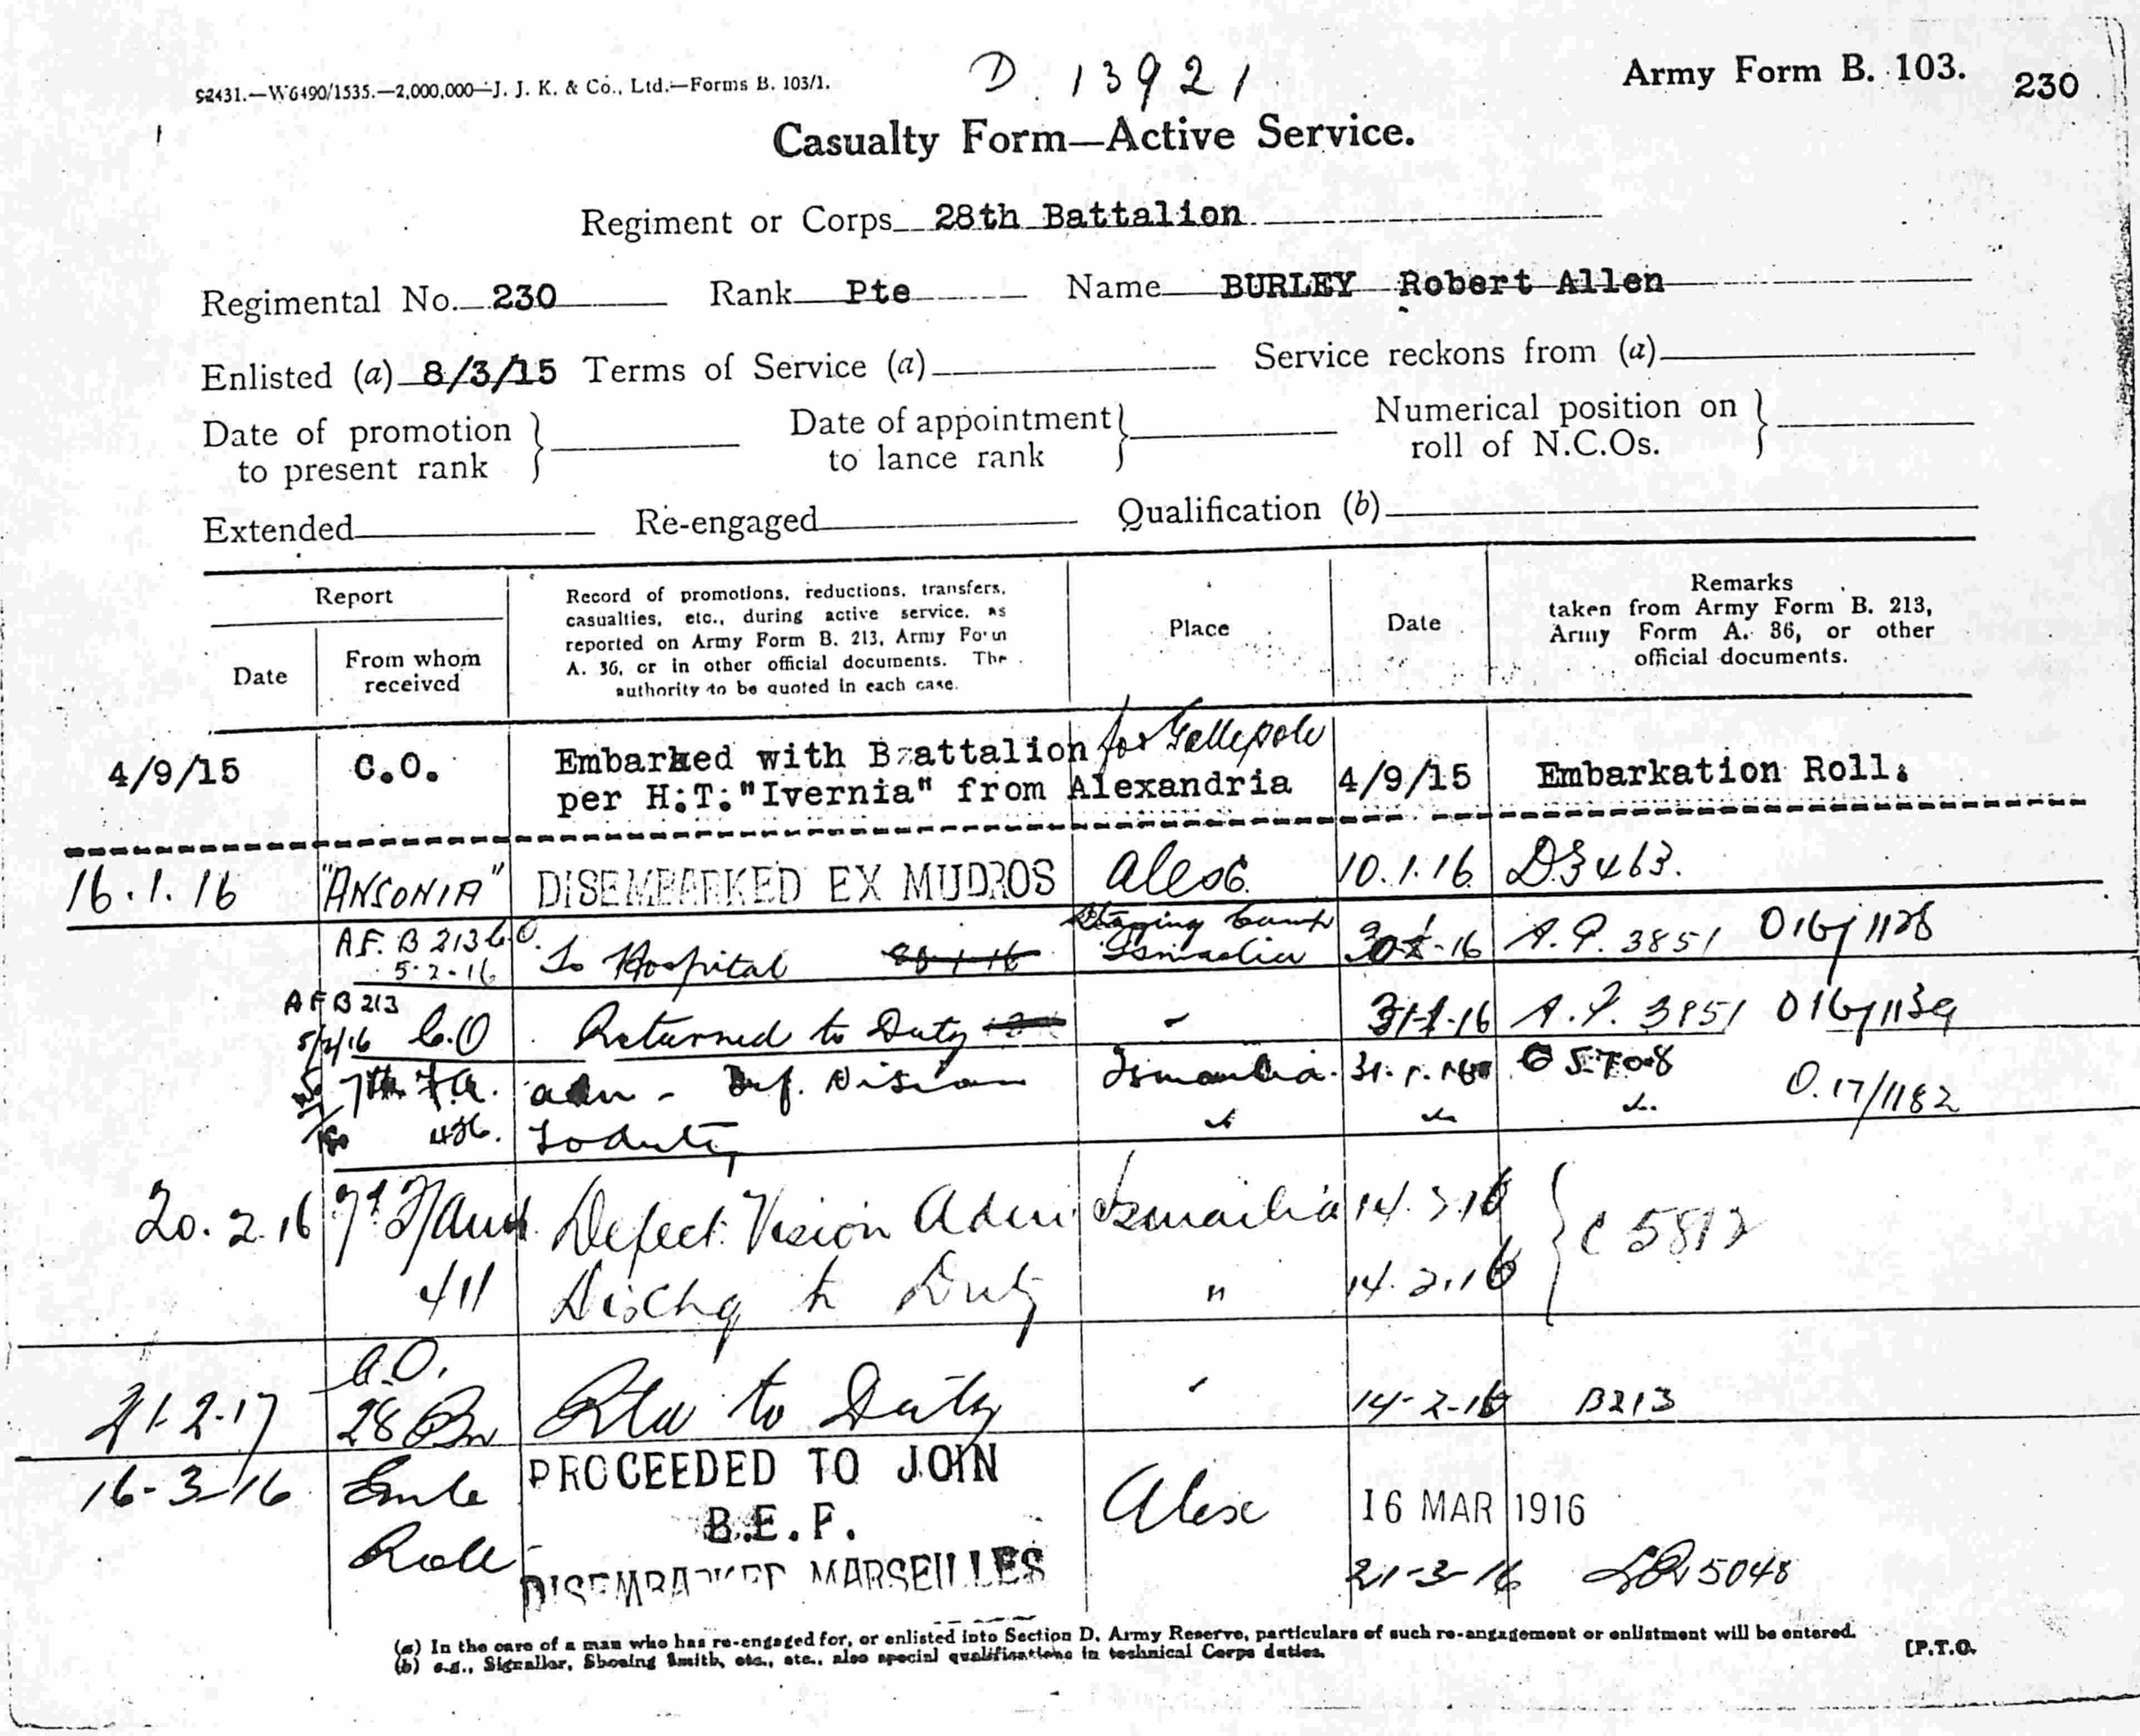 52431.—W6490/1535.—2,000,000—J. J. K. & Co., Ltd.—Forms B. 103/1.
D. 13921
Army Form B. 103.
230
Casualty Form—Active Service.
Regiment or Corps 28th Battalion
Regimental No. 230 Rank Pte Name BURLEY Robert Allen
Enlisted (a) 8/3/15 Terms of Service (a) Service reckons from (a)
Date of promotion to present rank } Date of appointment to lance rank } Numerical position on roll of N.C.Os. }
Extended Re-engaged Qualification (b)
Report
Date
From whom received
Record of promotions, reductions, transfers,
casualties, etc., during active service, as
reported on Army Form B. 213, Army Form
A. 36, or in other official documents. The
authority to be quoted in each case.
Place
Date
Remarks
taken from Army Form B. 213,
Army Form A. 36, or other
official documents.
4/9/15 C.O. Embarked with Battalion for Gallepole
per H:T:"Ivernia" from Alexandria 4/9/15 Embarkation Roll.
16.1.16 "ANSONIA" DISEMBARKED EX MUDROS Alex 10.1.16 D3463.
A.F. B 213 C.O. 5.2.16 To Hospital Staging Camp Ismailia 30-1-16 A.F. 3851
AFB 213 5/2/16 C.O Returned to Duty 31-1-16 A.F. 3851
7th F.A. adm - Def. Vision Ismailia. 31.1.16 C 5708 O.17/1182
To duty
20.2.16 Defect. Vision Adm Ismailia 14.2.16 } C 5812
411 Dischg to Duty " 14.2.16
21-2-17 C.O. 28 Bn Rtd to Duty 14-2-16 B213
16-3-16 Emb Roll PROCEEDED TO JOIN
B.E.F. Alex 16 MAR 1916
DISEMBARKED MARSEILLES 21-3-16 5048
(a) In the care of a man who has re-engaged for, or enlisted into Section D, Army Reserve, particulars of such re-engagement or enlistment will be entered.
(b) e.g., Signaller, Shoeing Smith, etc., etc., also special qualifications in technical Corps duties.
[P.T.O.